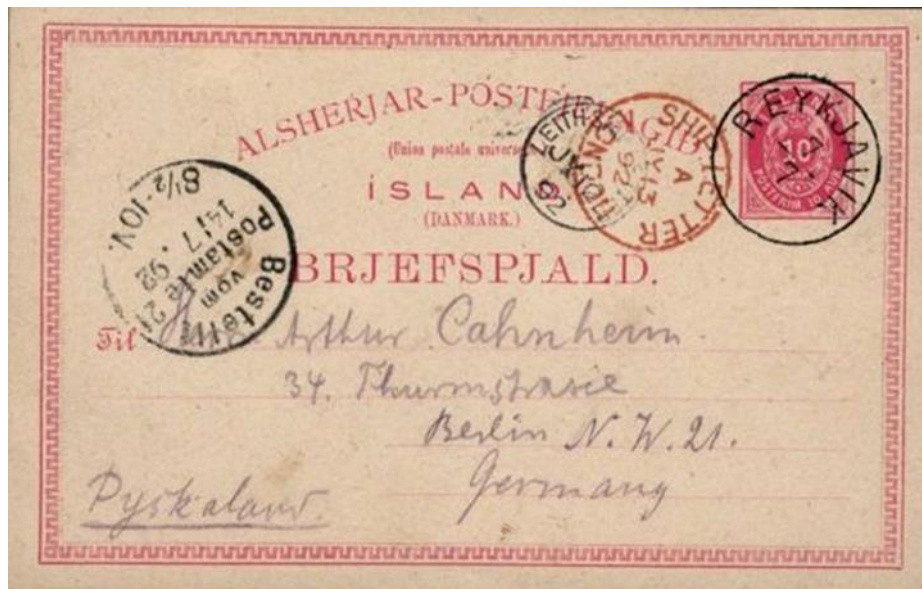 ALSHERJAR-PÓSTFJELAGIÐ
(Union postale universelle)
ÍSLAND
(DANMARK.)
BRJEFSPJALD.
REYKJAVIK
7
7
10
SHIP LETTER
A
JY 13
92
LEITH
JY
92
Bestellt
vom
Postamte 21
14 7. 92
8½-10V.
Til Arthur Cahnheim.
34. Thurmstrasse
Berlin N.W.21.
Germany
Pyskaland.